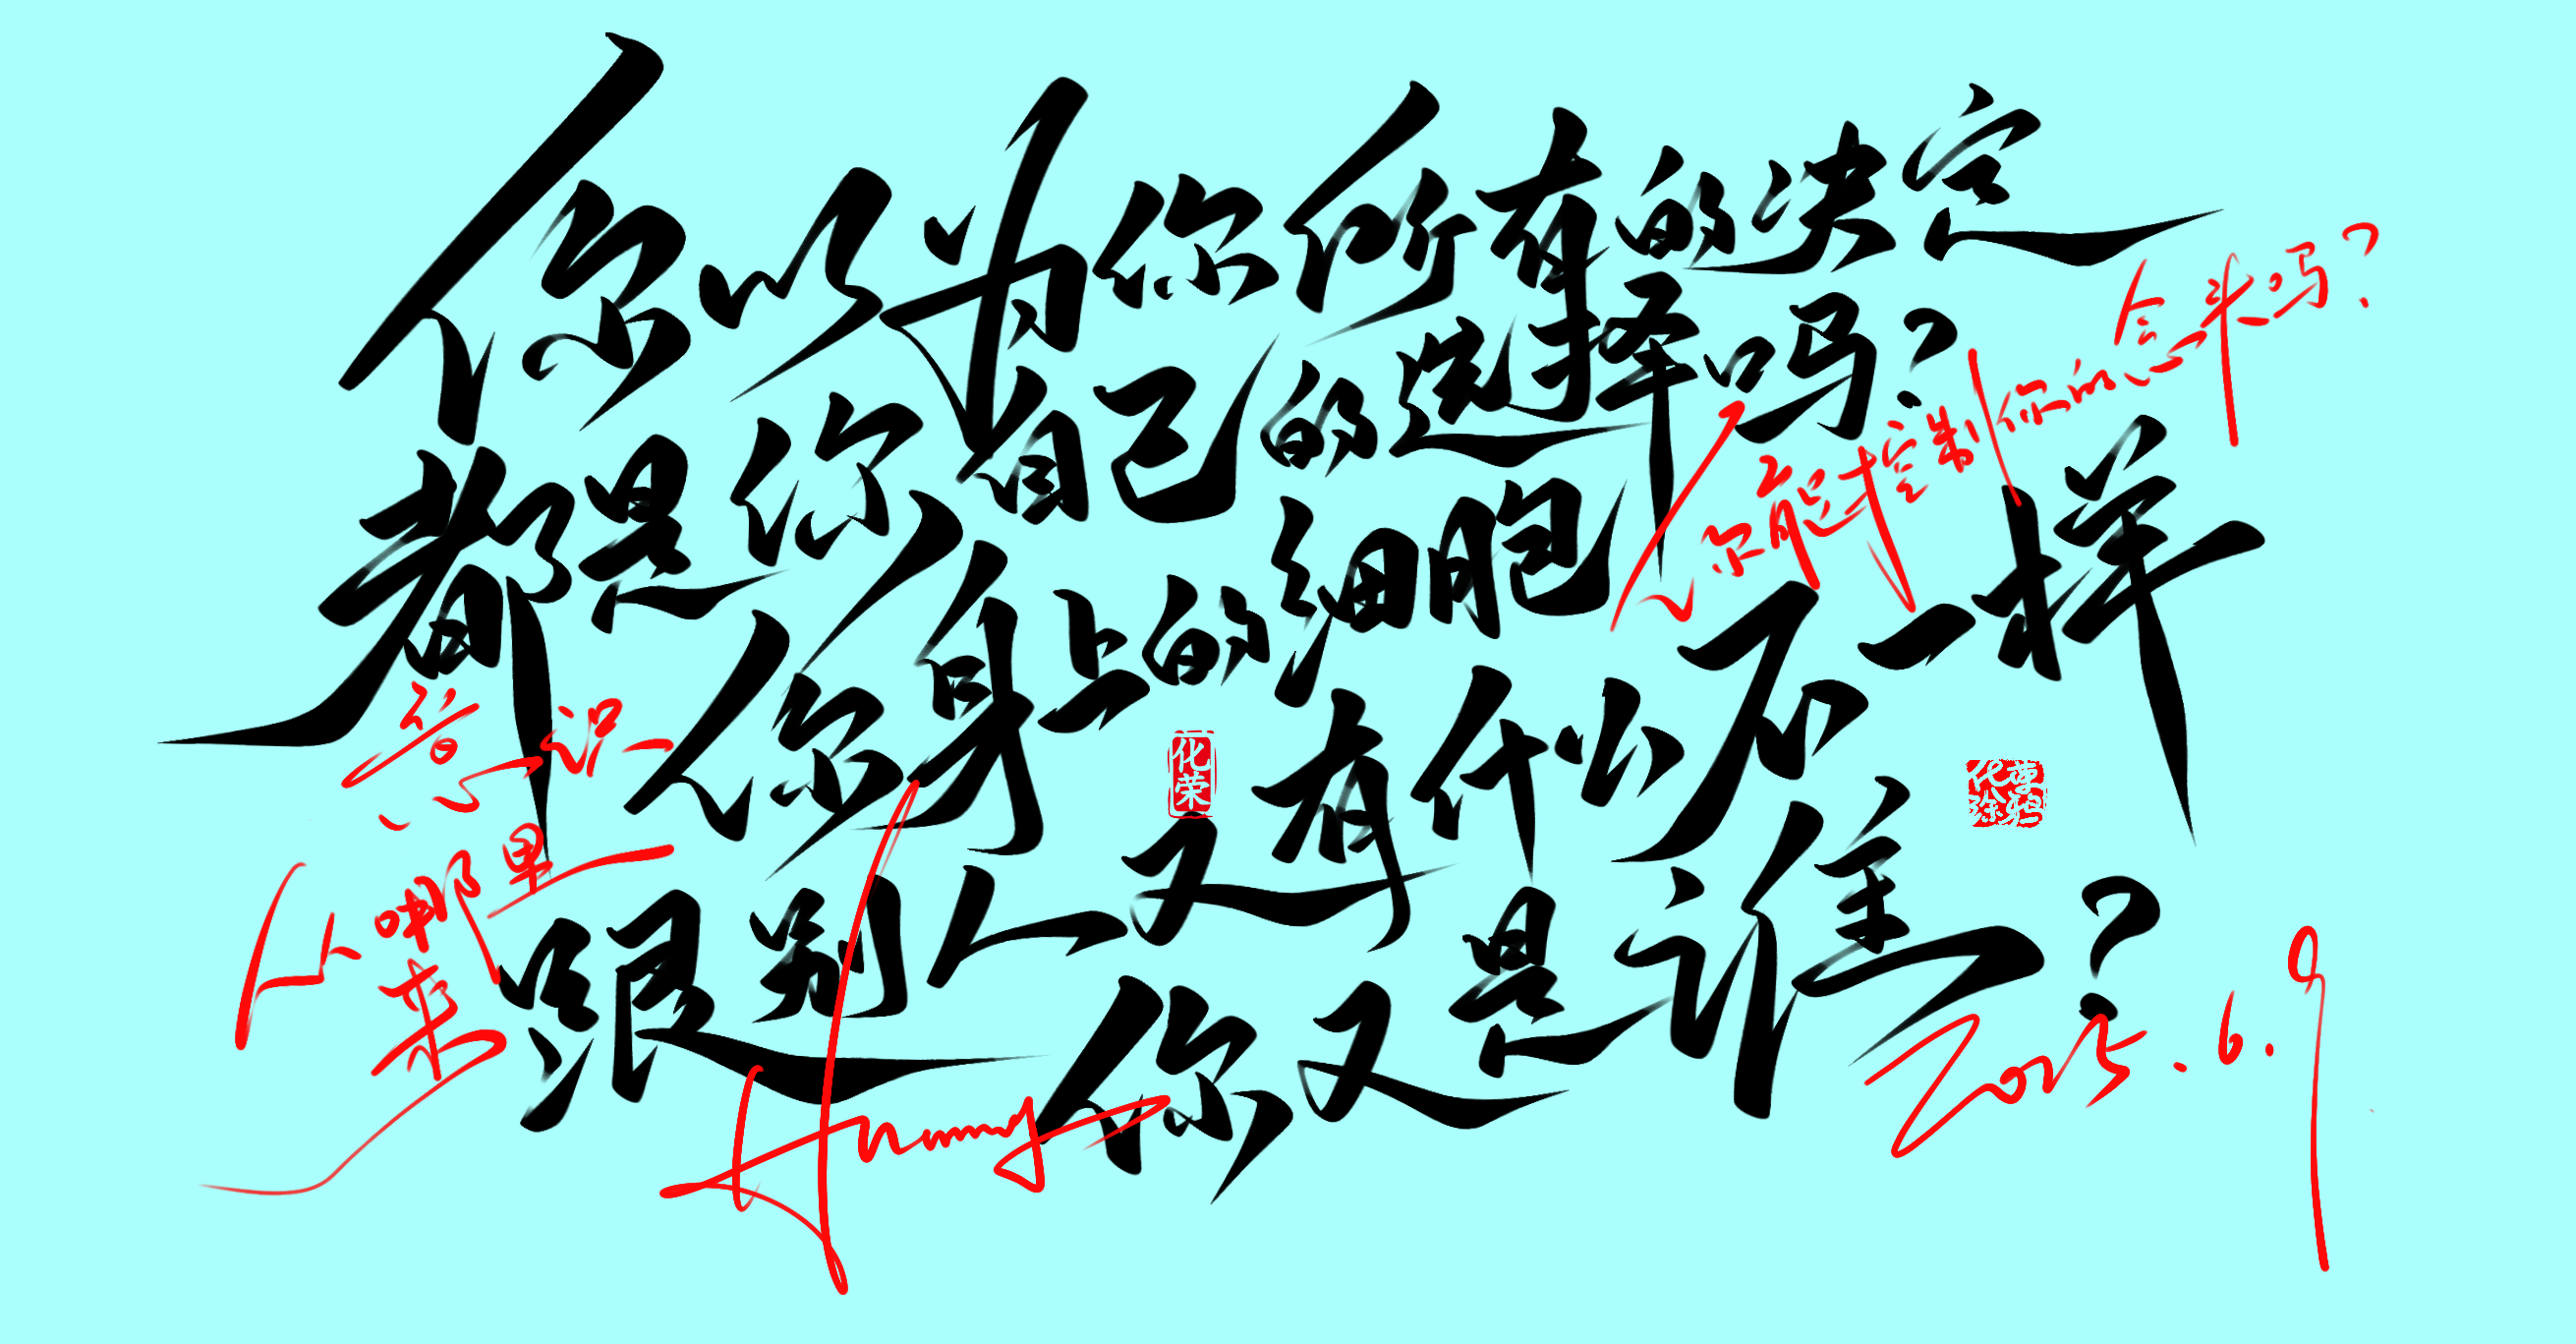 你以为你所有的决定
都是你自己的选择吗？
你能控制你的念头吗？
你身上的细胞
跟别人又有什么不一样
你又是谁？
意识
从哪里
来
化荣
2025.6.9